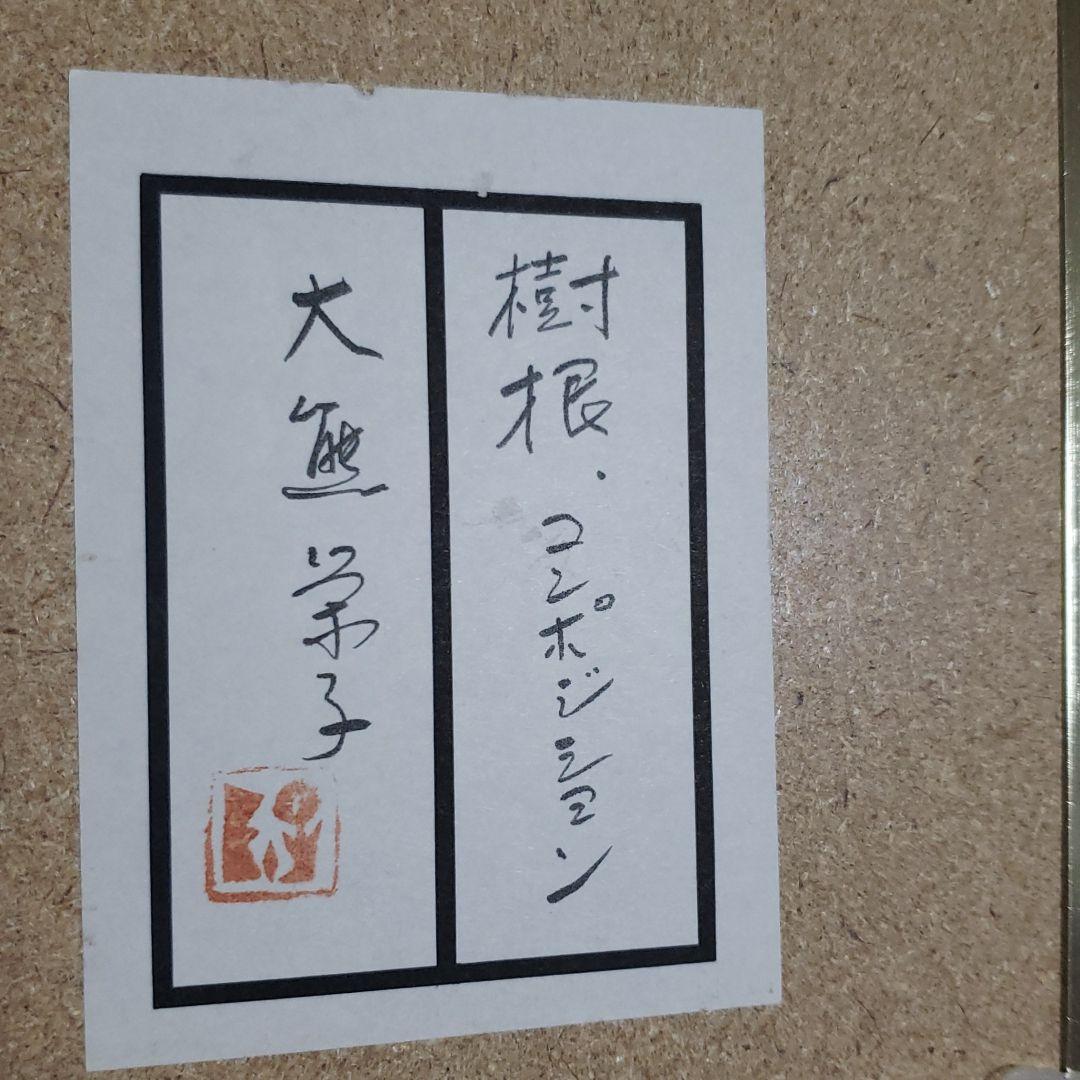 樹根．コンポジション
大熊栄子